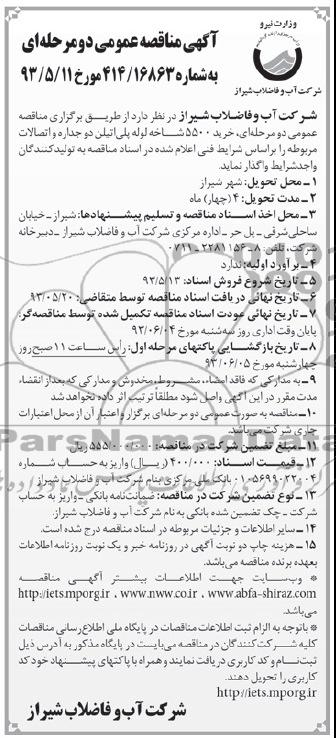 وزارت نیرو
شرکت آب و فاضلاب شیراز
آگهی مناقصه عمومی دو مرحله‌ای
به شماره ۴۱۴/۱۶۸۶۳ مورخ ۹۳/۵/۱۱
شرکت آب و فاضلاب شیراز در نظر دارد از طریق برگزاری مناقصه
عمومی دو مرحله‌ای، خرید ۵۵۰۰ شاخه لوله پلی‌اتیلن دو جداره و اتصالات
مربوطه را براساس شرایط فنی اعلام شده در اسناد مناقصه به تولیدکنندگان
واجدشرایط واگذار نماید.
۱ـ محل تحویل: شهر شیراز
۲ـ مدت تحویل: ۴ (چهار) ماه
۳ـ محل اخذ اسناد مناقصه و تسلیم پیشنهادها: شیراز ـ خیابان
ساحلی شرقی ـ پل حر ـ اداره مرکزی شرکت آب و فاضلاب شیراز ـ دبیرخانه
شرکت، تلفن: ۸ـ۲۲۸۱۱۵۶ ـ ۰۷۱۱
۴ـ برآورد اولیه: ندارد
۵ـ تاریخ شروع فروش اسناد: ۹۳/۵/۱۳
۶ـ تاریخ نهائی دریافت اسناد مناقصه توسط متقاضی: ۹۳/۰۵/۲۰
۷ـ تاریخ نهائی عودت اسناد مناقصه تکمیل شده توسط مناقصه‌گر:
پایان وقت اداری روز سه‌شنبه مورخ ۹۳/۰۶/۰۴
۸ـ تاریخ بازگشایی پاکتهای مرحله اول: رأس ساعت ۱۱ صبح روز
چهارشنبه مورخ ۹۳/۰۶/۰۵
۹ـ به مدارکی که فاقد امضاء، مشروط، مخدوش و مدارکی که بعد از انقضاء
مدت مقرر در این آگهی واصل شود مطلقاً ترتیب اثر داده نخواهد شد
۱۰ـ مناقصه به صورت عمومی دو مرحله‌ای برگزار و اعتبار آن از محل اعتبارات
جاری شرکت می‌باشد.
۱۱ـ مبلغ تضمین شرکت در مناقصه: ۵۵۵/۰۰۰/۰۰۰ ریال
۱۲ـ قیمت اسناد: ۴۰۰/۰۰۰ (ریال) واریز به حساب شماره
بانک ملی مرکزی بنام شرکت آب و فاضلاب شیراز
۱۳ـ نوع تضمین شرکت در مناقصه: ضمانت‌نامه بانکی ـ واریز به حساب
شرکت ـ چک تضمین شده بانکی به نام شرکت آب و فاضلاب شیراز.
۱۴ـ سایر اطلاعات و جزئیات مربوطه در اسناد مناقصه درج شده است.
۱۵ـ هزینه چاپ دو نوبت آگهی در روزنامه خبر و یک نوبت روزنامه اطلاعات
بعهده برنده مناقصه می‌باشد.
* وب‌سایت جهت اطلاعات بیشتر آگهی مناقصه
http://iets.mporg.ir ، www.nww.co.ir ، www.abfa-shiraz.com
می‌باشد.
* باتوجه به الزام ثبت اطلاعات مناقصات در پایگاه ملی اطلاع‌رسانی مناقصات
کلیه شرکت‌کنندگان در مناقصه می‌بایست در پایگاه مذکور به آدرس ذیل
ثبت‌نام و کد کاربری دریافت نمایند و همراه با پاکتهای پیشنهاد خود کد
کاربری را تحویل دهند.
http://iets.mporg.ir
شرکت آب و فاضلاب شیراز